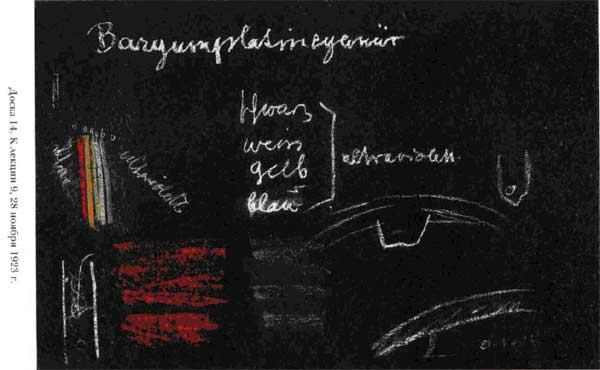 Доска 14. К лекции 9, 28 ноября 1923 г.
Baryumplatincyanür
schwarz
weiss
gelb
blau
ultraviolett